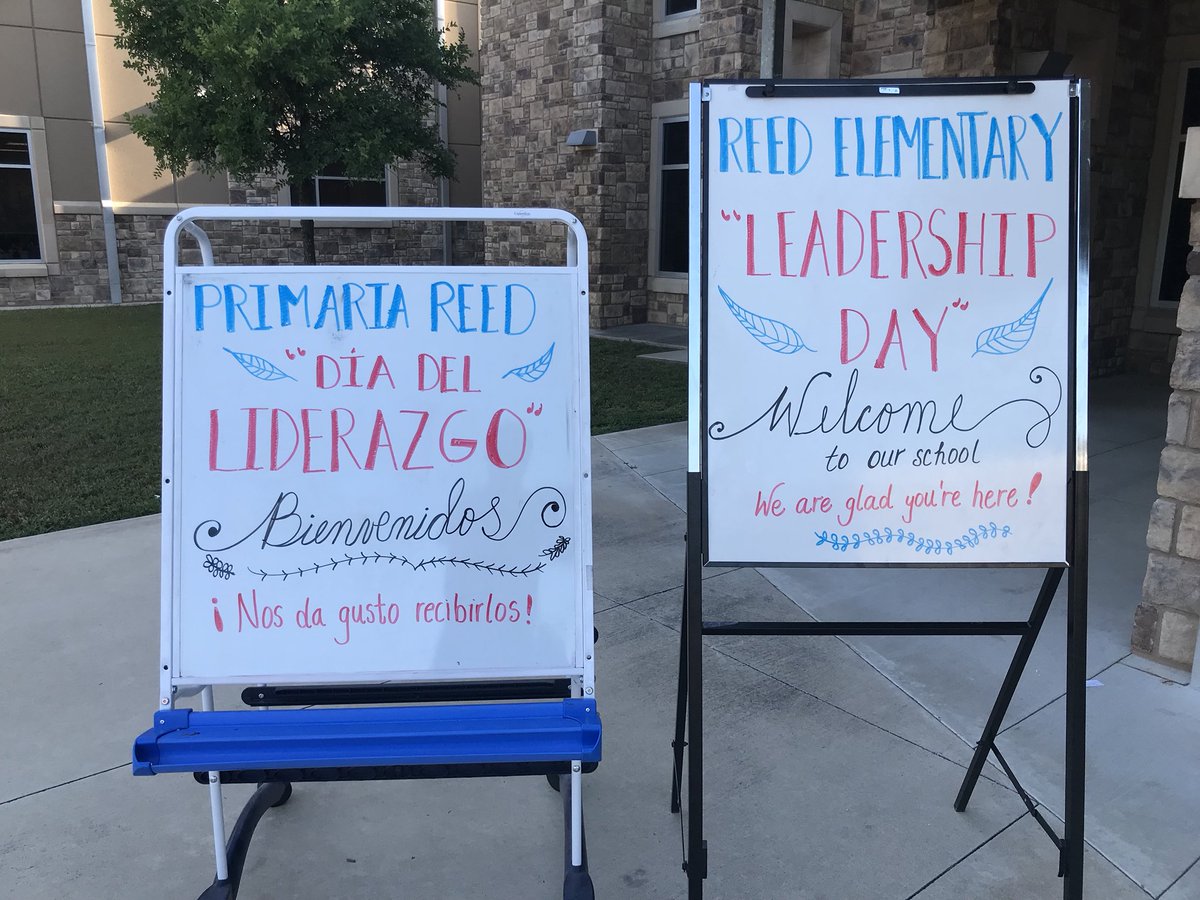 PRIMARIA REED
"DÍA DEL
LIDERAZGO"
Bienvenidos
¡Nos da gusto recibirlos!
REED ELEMENTARY
"LEADERSHIP
DAY"
Welcome
to our school
We are glad you're here!